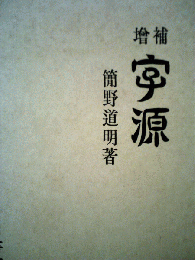 增補
字源
簡野道明著